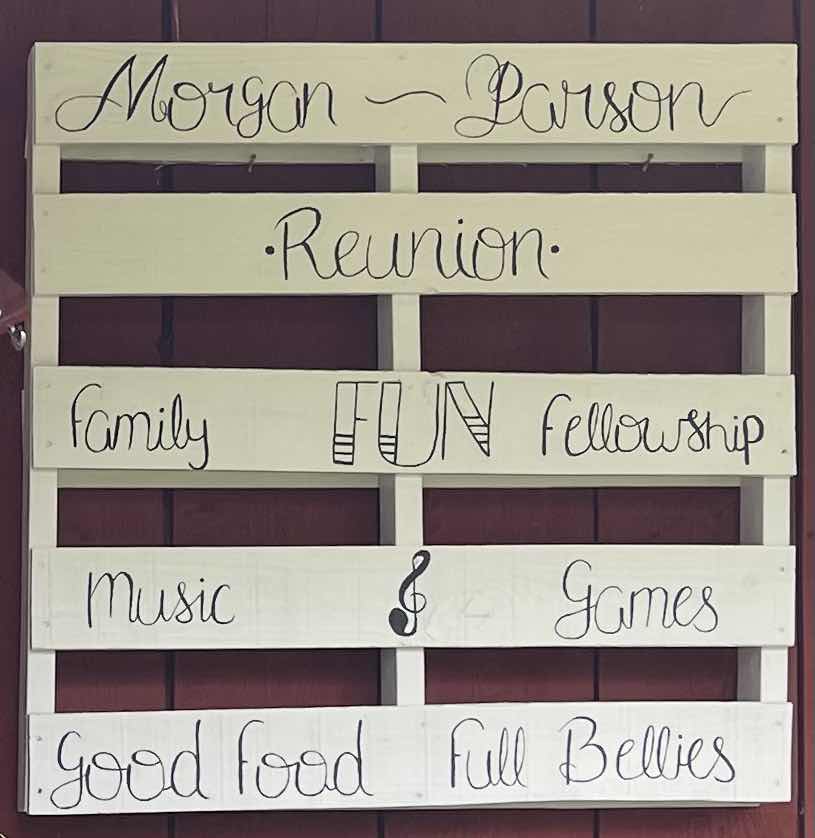 Morgan ~ Parson
·Reunion·
family FUN fellowship
music Games
Good food full Bellies